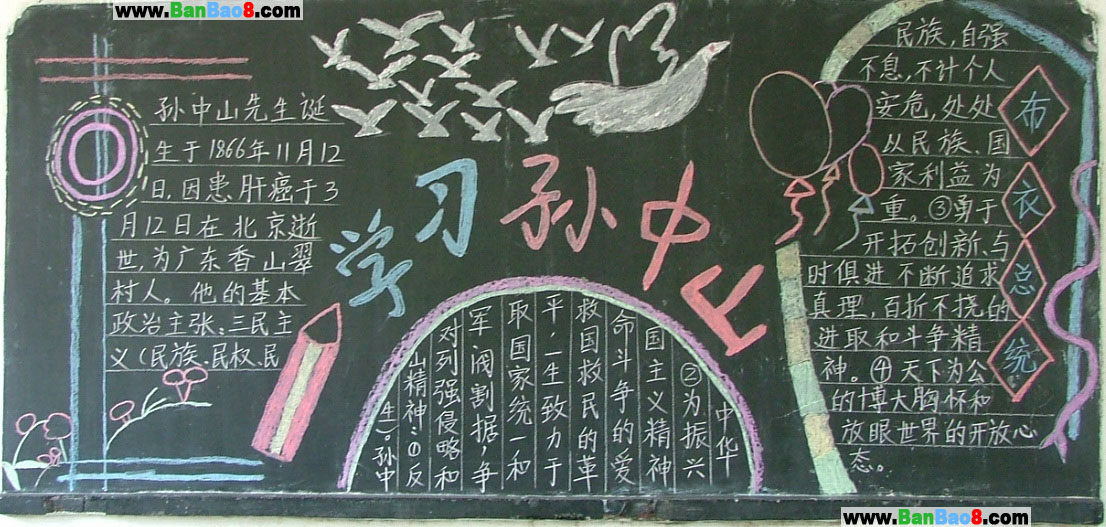 www.BanBao8.com
学习孙中山
孙中山先生诞
生于1866年11月12
日,因患肝癌于3
月12日在北京逝
世,为广东香山翠
村人。他的基本
政治主张:三民主
义(民族、民权、民
生)。孙中
山精神:①反
对列强侵略和
军阀割据,争
取国家统一和
平,一生致力于
救国救民的革
命斗争的爱
国主义精神
②为振兴
中华
民族,自强
不息,不计个人
安危,处处
从民族、国
家利益为
重。③勇于
开拓创新、与
时俱进不断追求
真理,百折不挠的
进取和斗争精
神。④天下为公
的博大胸怀和
放眼世界的开放心
态。
布衣总统
www.BanBao8.com